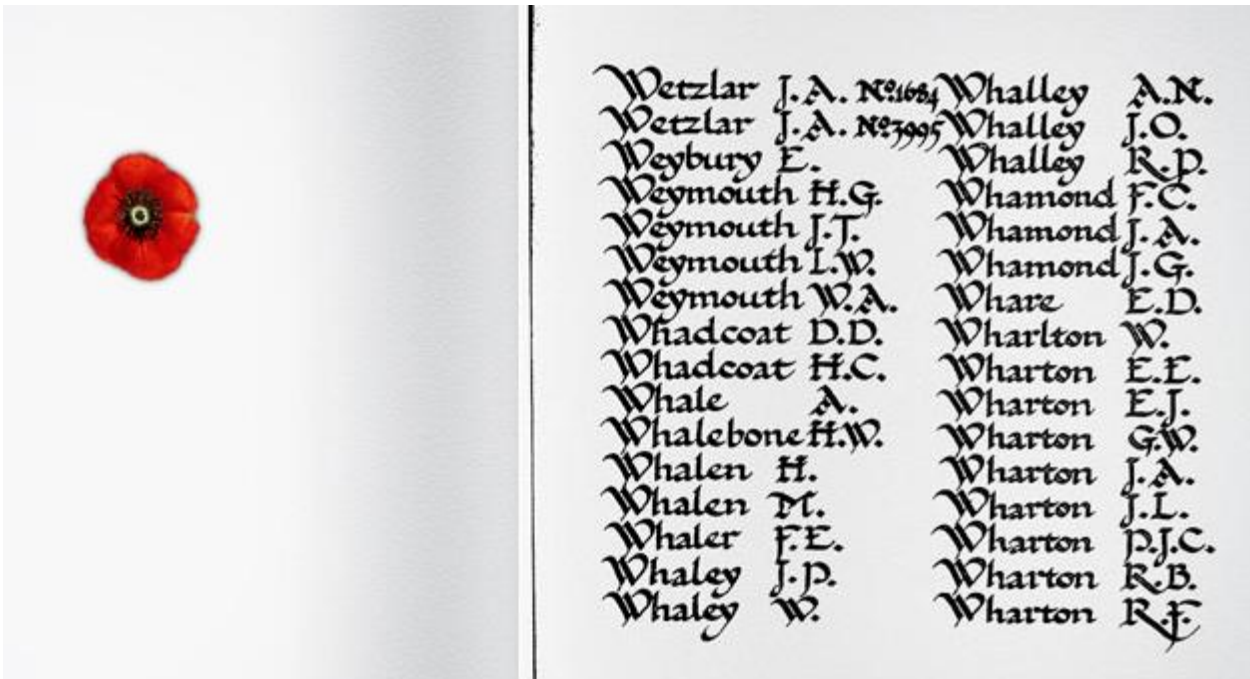 Wetzlar J.A. Nº1684
Wetzlar J.A. Nº3995
Weybury E.
Weymouth H.G.
Weymouth J.T.
Weymouth L.W.
Weymouth W.A.
Whadcoat D.D.
Whadcoat H.C.
Whale A.
Whalebone H.W.
Whalen H.
Whalen M.
Whaler F.E.
Whaley J.P.
Whaley W.
Whalley A.N.
Whalley J.O.
Whalley R.P.
Whamond F.C.
Whamond J.A.
Whamond J.G.
Whare E.D.
Wharlton W.
Wharton E.E.
Wharton E.J.
Wharton G.W.
Wharton J.A.
Wharton J.L.
Wharton P.J.C.
Wharton R.B.
Wharton R.F.